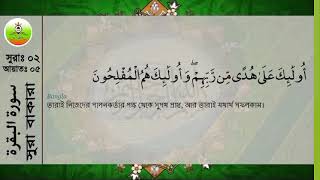 সুরাঃ ০২
আয়াতঃ ০৫
سورة البقرة
সুরা বাকারা
أُولَٰئِكَ عَلَىٰ هُدًى مِّن رَّبِّهِمْ ۖ وَأُولَٰئِكَ هُمُ الْمُفْلِحُونَ
Bangla
তারাই নিজেদের পালনকর্তার পক্ষ থেকে সুপথ প্রাপ্ত, আর তারাই যথার্থ সফলকাম।